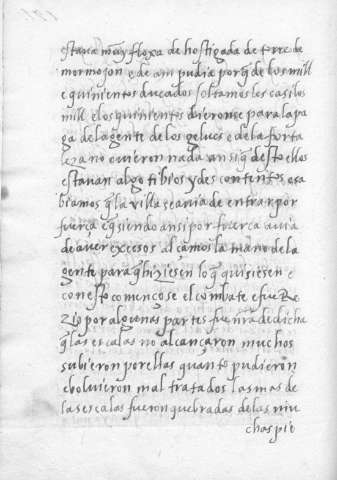 estava muy floxa de hostigada de torre de
mormojon e de ampudia porq̃ de los mill
e quinientos ducados soltamosles casi los
mill e los quinientos dieronse para la pa
ga de la gente de los gelues e de la forta
leza no ovieron nada ansi q̃ desto ellos
estavan algo tibios y descontentos e sa
biamos q̃ la villa se avia de entrar por
fuerça e q̃ siendo ansi por fuerça avia
de aver excesos alçamos la mano de la
gente para q̃ hiziesen lo q̃ quisiesen e
con esto començose el combate e fue Re
zio por algunas partes fue nr̃a dedicha
q̃ las escalas no alcançaron muchos
subieron por ellas quanto pudieron
e bolvieron mal tratados las mas de
las escalas fueron quebradas de las mu
chas pie